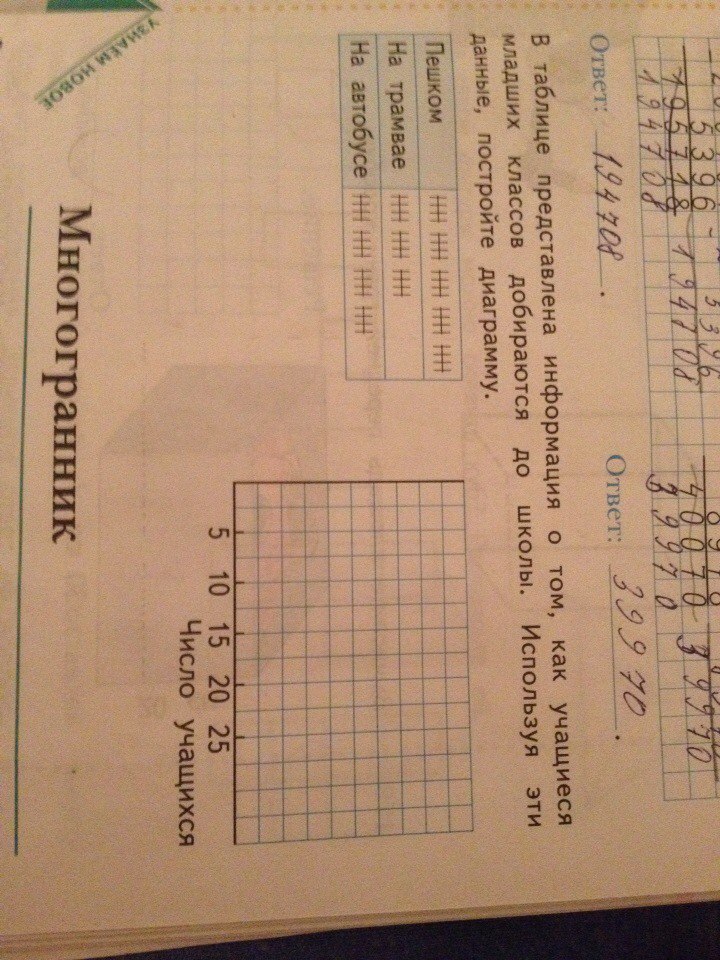 195718
194708
194708
Ответ: 194708.
40070
39970
39970
Ответ: 39970.
В таблице представлена информация о том, как учащиеся
младших классов добираются до школы. Используя эти
данные, постройте диаграмму.
Пешком
На трамвае
На автобусе
5 10 15 20 25
Число учащихся
УЗНАЕМ НОВОЕ
Многогранник